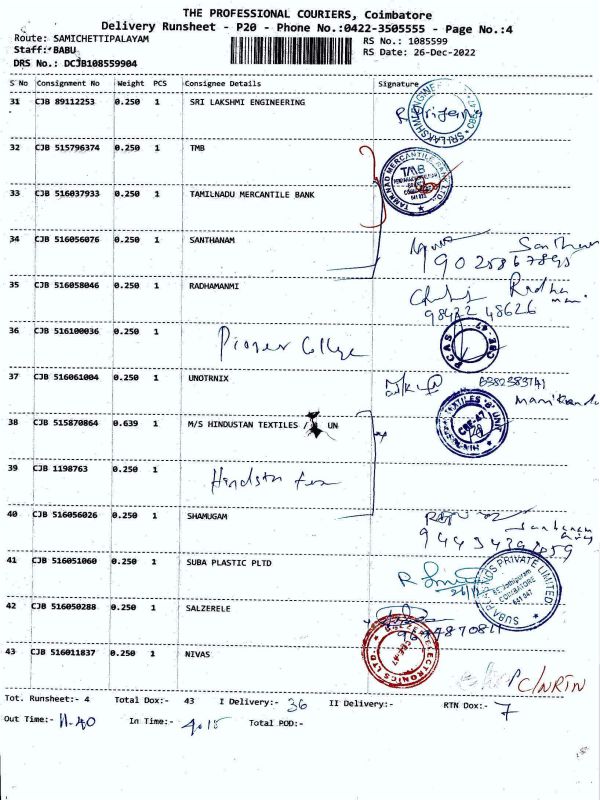 THE PROFESSIONAL COURIERS, Coimbatore
Delivery Runsheet - P20 - Phone No.:0422-3505555 - Page No.:4
Route: SAMICHETTIPALAYAM RS No.: 1085599
Staff: BABU RS Date: 26-Dec-2022
DRS No.: DCJB108559904
S No Consignment No Weight PCS Consignee Details Signature
31 CJB 89112253 0.250 1 SRI LAKSHMI ENGINEERING
32 CJB 515796374 0.250 1 TMB
TMB
33 CJB 516037933 0.250 1 TAMILNADU MERCANTILE BANK
34 CJB 516056076 0.250 1 SANTHANAM
35 CJB 516058046 0.250 1 RADHAMANMI
Radha
98422 48626
36 CJB 516100036 0.250 1 Pioneer College
PCAS CBE-47
37 CJB 516061004 0.250 1 UNOTRNIX
38 CJB 515870864 0.639 1 M/S HINDUSTAN TEXTILES / UN
CBE-47
39 CJB 1198763 0.250 1
40 CJB 516056026 0.250 1 SHAMUGAM
41 CJB 516051060 0.250 1 SUBA PLASTIC PLTD
COIMBATORE
641 047
42 CJB 516050288 0.250 1 SALZERELE
SALZER ELECTRONICS LTD
CBE-47
43 CJB 516011837 0.250 1 NIVAS
C/NRTN
Tot. Runsheet:- 4 Total Dox:- 43 I Delivery:- 36 II Delivery:- RTN Dox:- 7
Out Time:- 11-40 In Time:- 4.15 Total POD:-